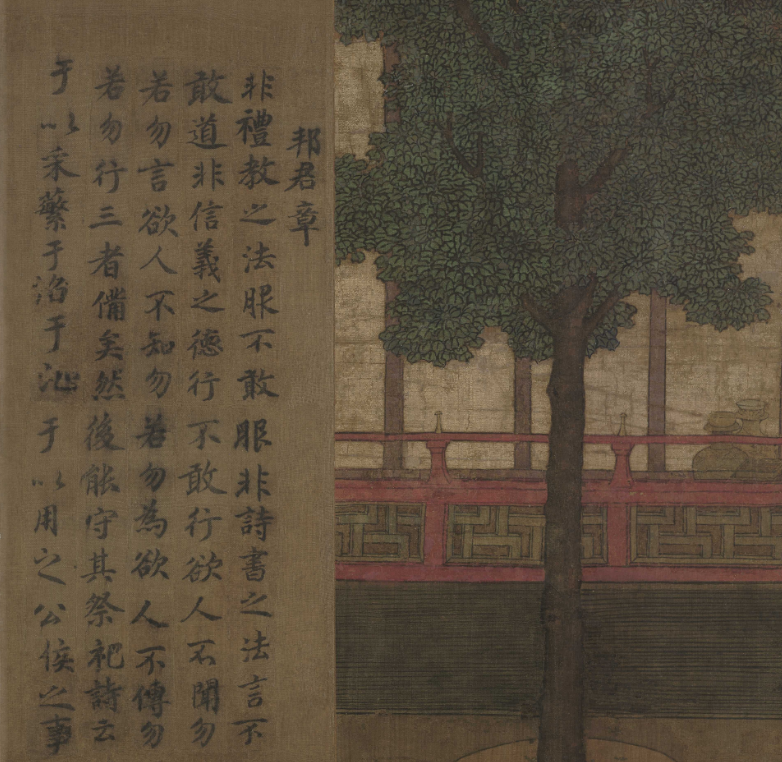 邦君章
非禮教之法服不敢服非詩書之法言不
敢道非信義之德行不敢行欲人不聞勿
若勿言欲人不知勿若勿為欲人不傳勿
若勿行三者備矣然後能守其祭祀詩云
于以采蘩于沼于沚于以用之公侯之事